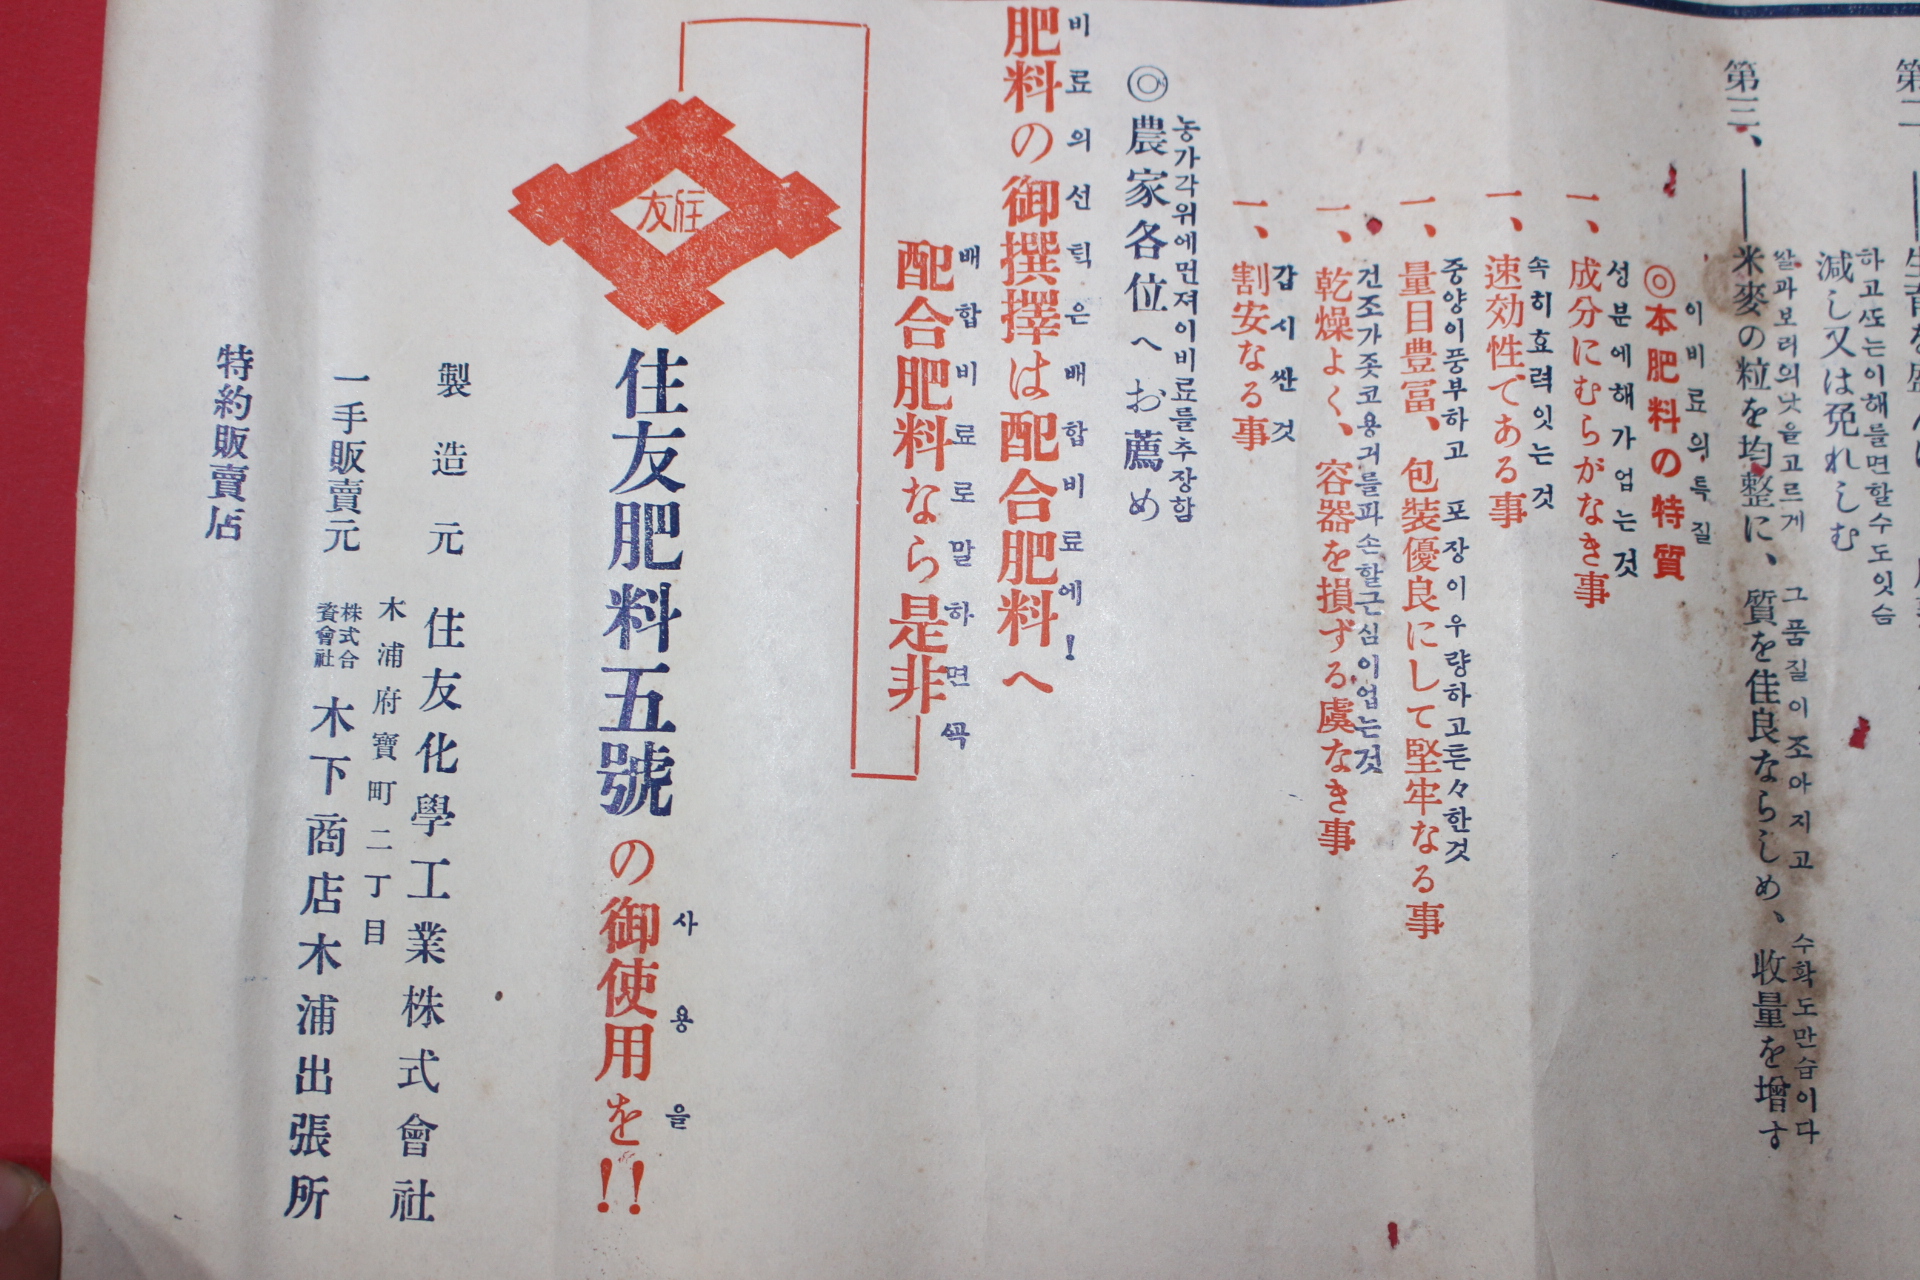 第二、
하고또는이해를면할수도잇슴
減し又は免れしむ
쌀과보리의낫을고르게 그품질이조아지고 수확도만습이다
第三、――米麥の粒を均整に、質を佳良ならしめ、收量を增す
이비료의특질
◎本肥料の特質
성분에해가업는것
一、成分にむらがなき事
속히효력잇는것
一、速効性である事
중양이풍부하고 포장이우량하고든々한것
一、量目豊富、包裝優良にして堅牢なる事
건조가죳코용긔를파손할근심이업는것
一、乾燥よく、容器を損ずる虞なき事
갑시싼것
一、割安なる事
농가각위에먼져이비료를추장함
◎農家各位へお薦め
비료의선틱은배합비료에!
肥料の御撰擇は配合肥料へ
배합비료로말하면꼭
配合肥料なら是非
住友
사용을
住友肥料五號の御使用を!!
製造元 住友化學工業株式會社
木浦府寶町二丁目
一手販賣元 株式合資會社 木下商店木浦出張所
特約販賣店